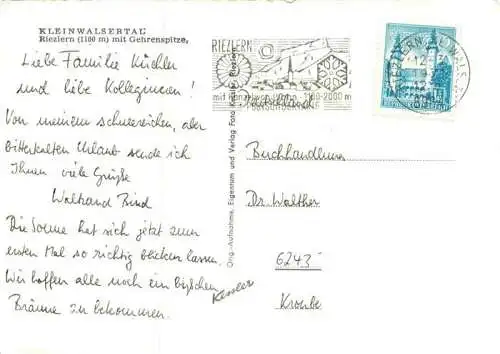 KLEINWALSERTAL
Riezlern (1100 m) mit Gehrenspitze,
Liebe Familie Küchler
und liebe Kolleginnen!
Von meinem schneereichen, aber
bitterkalten Urlaub sende ich
Ihnen viele Grüße
Waltraud Bind
Die Sonne hat sich jetzt zum
ersten Mal so richtig blicken lassen.
Wir hoffen alle noch ein bißchen
Bräune zu bekommen.
Kessler
Orig.-Aufnahme, Eigentum und Verlag Foto Riezlern
RIEZLERN
mit 1100-2000 m
Deutschland
Buchhandlung
Dr. Walther
6243